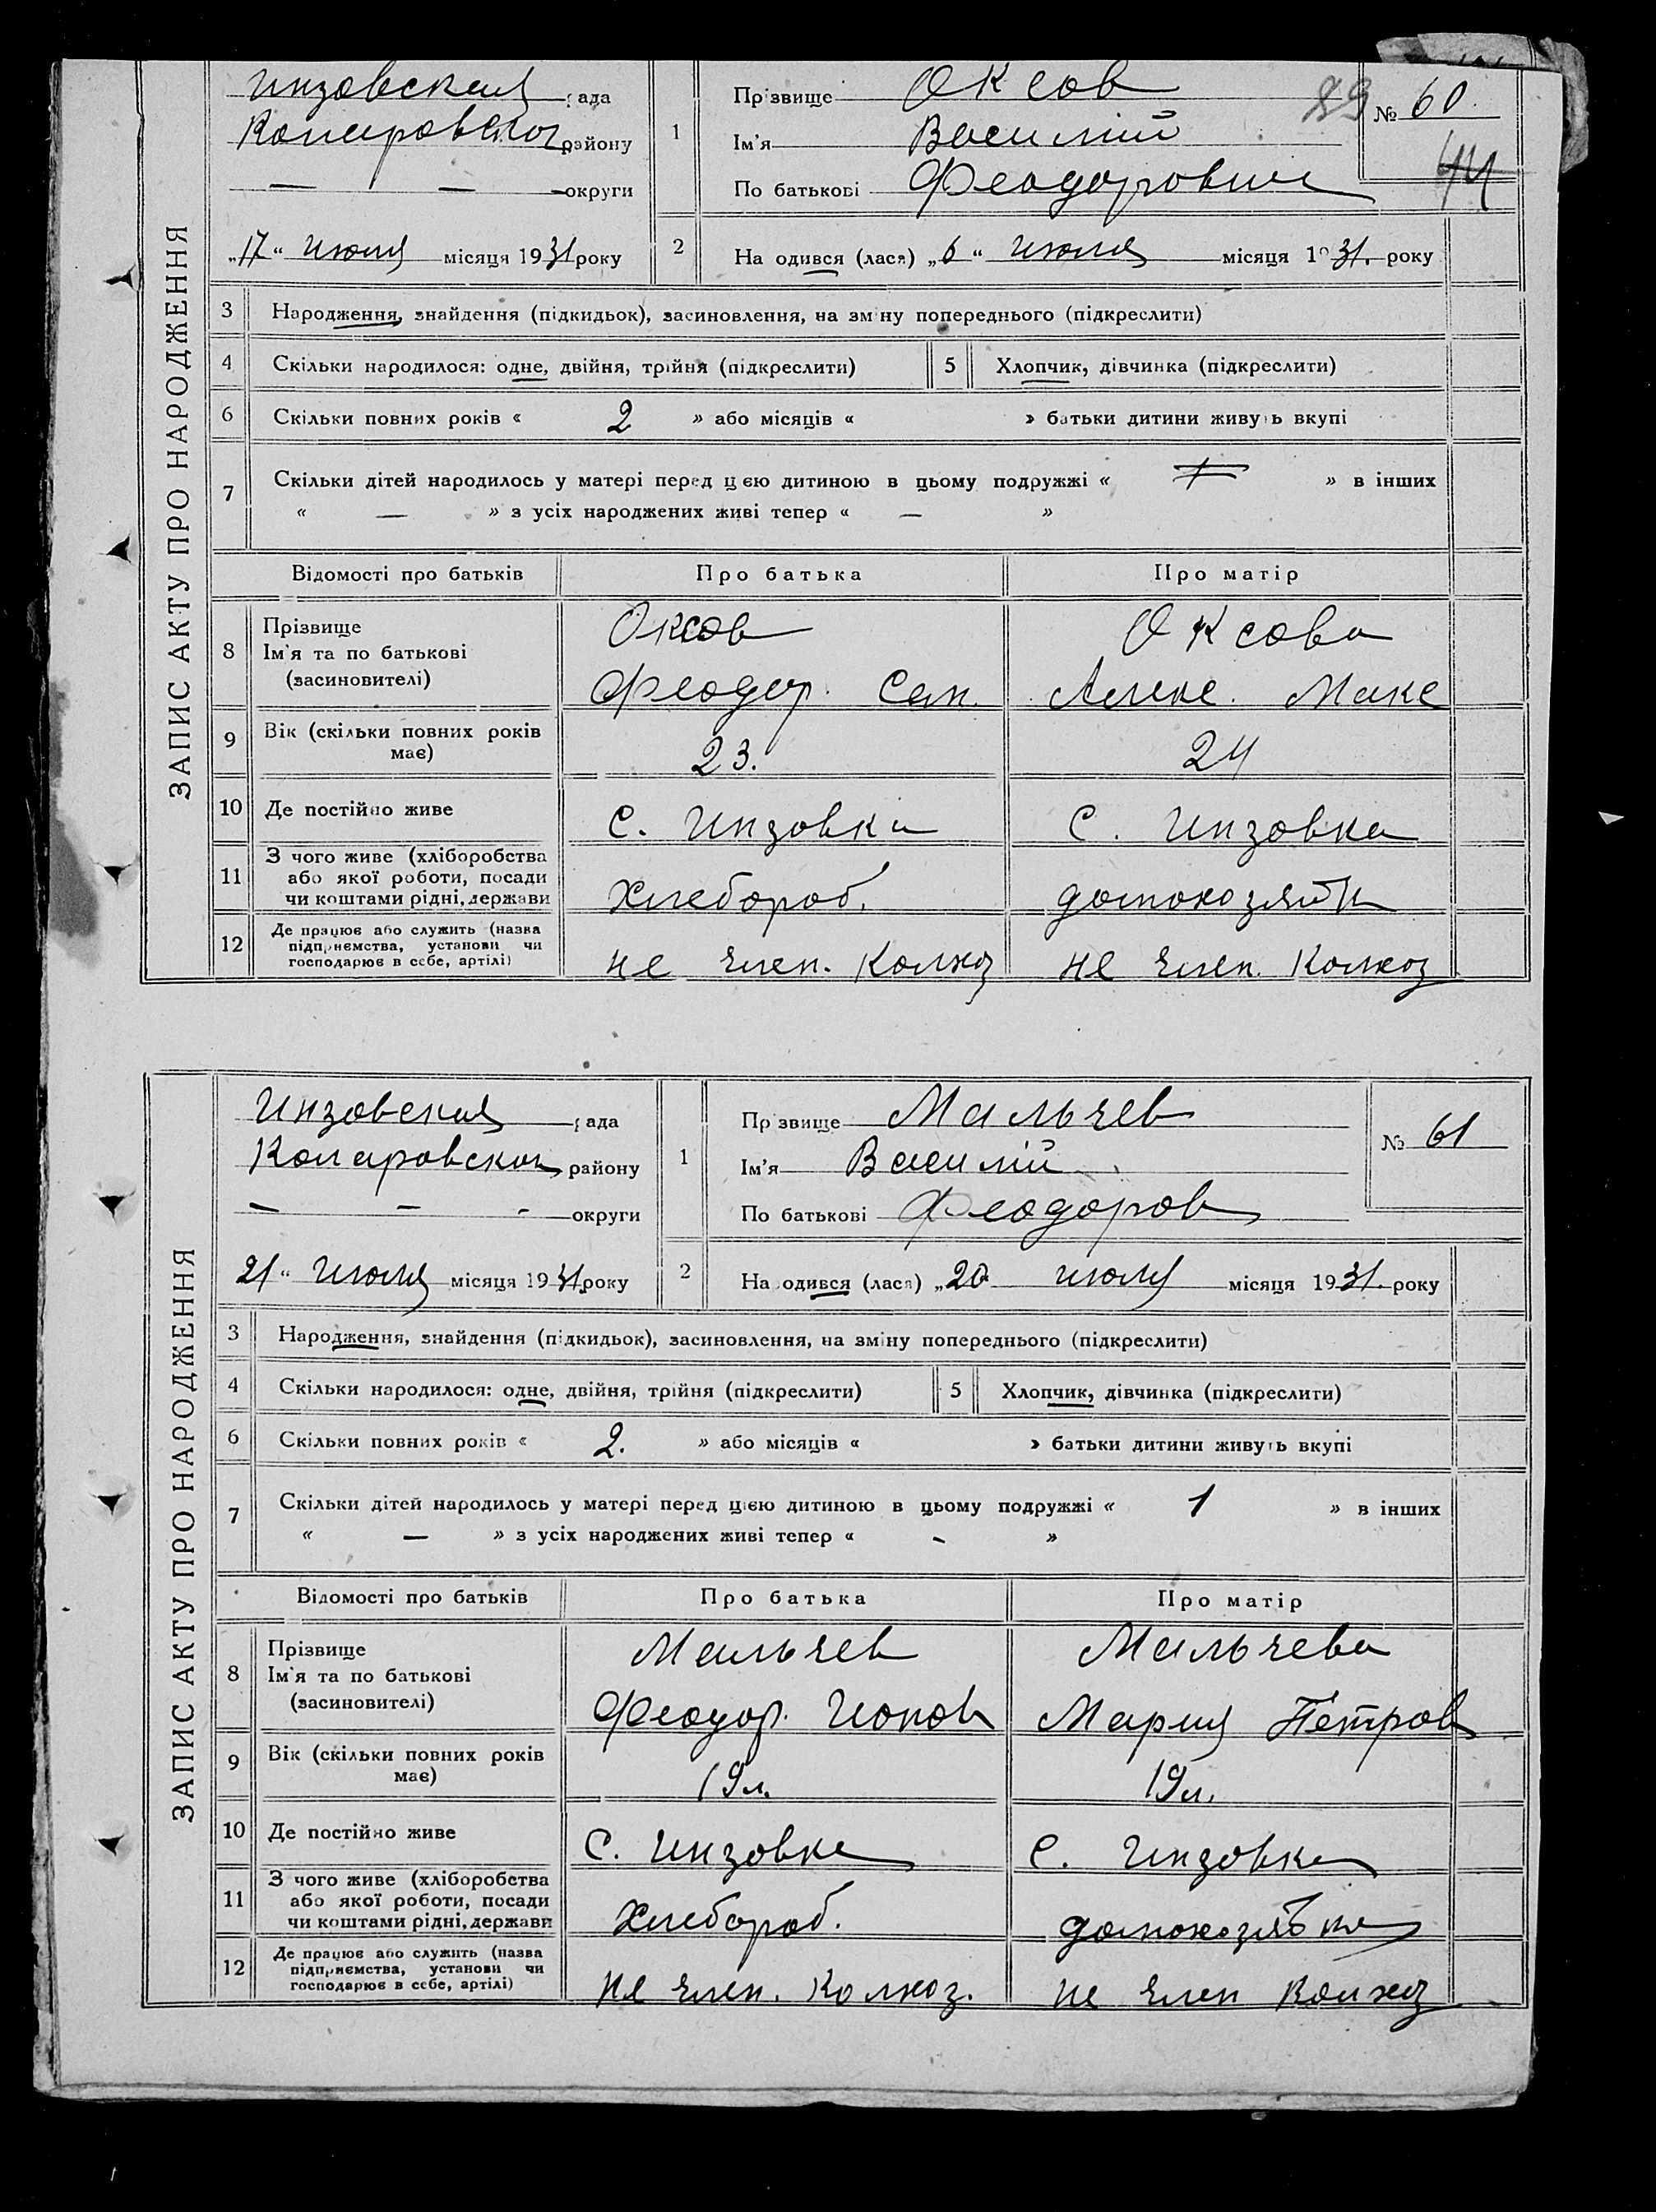 ЗАПИС АКТУ ПРО НАРОДЖЕННЯ
Инзовская рада
Коларовског району
— — — округи
„17“ июля місяця 1931 року
1
Прізвище Оксов
Ім'я Василий
По батькові Феодорович
89
№ 60.
44
2
Народився (лася) „6“ июля місяця 1931. року
3 Народження, знайдення (підкидьок), засиновлення, на зміну попереднього (підкреслити)
4 Скільки народилося: одне, двійня, трійня (підкреслити) 5 Хлопчик, дівчинка (підкреслити)
6 Скільки повних років « 2 » або місяців « » батьки дитини живуть вкупі
7 Скільки дітей народилось у матері перед цією дитиною в цьому подружжі « » в інших
« — » з усіх народжених живі тепер « — »
Відомості про батьків Про батька Про матір
8 Прізвище Ім'я та по батькові (засиновителі)
Оксов Оксова
Феодор. Сем. Алекс. Макс
9 Вік (скільки повних років має) 23. 24
10 Де постійно живе с. Инзовка с. Инзовка
11 З чого живе (хліборобства або якої роботи, посади чи коштами рідні, держави
Хлебороб. домохозяйк
12 Де працює або служить (назва підприємства, установи чи господарює в себе, артілі)
не член. Колхоз не член. Колхоз
ЗАПИС АКТУ ПРО НАРОДЖЕННЯ
Инзовская рада
Коларовског району
— — - округи
21“ июля місяця 1931. року
1
Прізвище Мальчев
Ім'я Василий
По батькові Феодоров
№ 61
2
Народився (лася) „20 июля місяця 1931. року
3 Народження, знайдення (підкидьок), засиновлення, на зміну попереднього (підкреслити)
4 Скільки народилося: одне, двійня, трійня (підкреслити) 5 Хлопчик, дівчинка (підкреслити)
6 Скільки повних років « 2. » або місяців « » батьки дитини живуть вкупі
7 Скільки дітей народилось у матері перед цією дитиною в цьому подружжі « 1 » в інших
« — » з усіх народжених живі тепер « - »
Відомості про батьків Про батька Про матір
8 Прізвище Ім'я та по батькові (засиновителі)
Мальчев Мальчева
Феодор. Ионов Мария Петров
9 Вік (скільки повних років має) 19 л. 19 л.
10 Де постійно живе с. Инзовка с. Инзовка
11 З чого живе (хліборобства або якої роботи, посади чи коштами рідні, держави
Хлебороб. домохозяйка
12 Де працює або служить (назва підприємства, установи чи господарює в себе, артілі)
не член. Колхоз. не член Колхоз